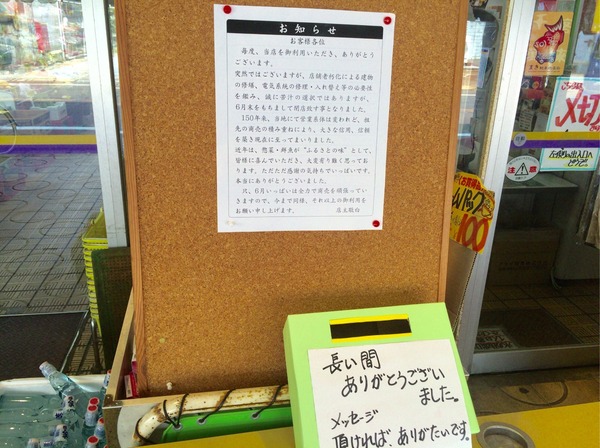 お知らせ
お客様各位
毎度、当店を御利用いただき、ありがとう
ございます。
突然ではございますが、店舗老朽化による建物
の修繕、電気系統の修理・入れ替え等の必要性
を鑑み、誠に苦汁の選択ではありますが、
6月末をもちまして閉店致す事となりました。
150年来、当地にて営業形体は変われど、祖
先の商売の積み重ねにより、大きな信用、信頼
を築き現在に至ってまいりました。
近年は、惣菜・鮮魚が"ふるさとの味"として、
皆様に喜んでいただき、大変有り難く思ってお
ります。ただただ感謝の気持ちでいっぱいです。
本当にありがとうございました。
只、6月いっぱいは全力で商売を頑張ってい
きますので、今まで同様、それ以上の御利用を
お願い申し上げます。 店主敬白
長い間
ありがとうござい
ました。
メッセージ
頂ければ、ありがたいです。
〆切
注意
パック
100